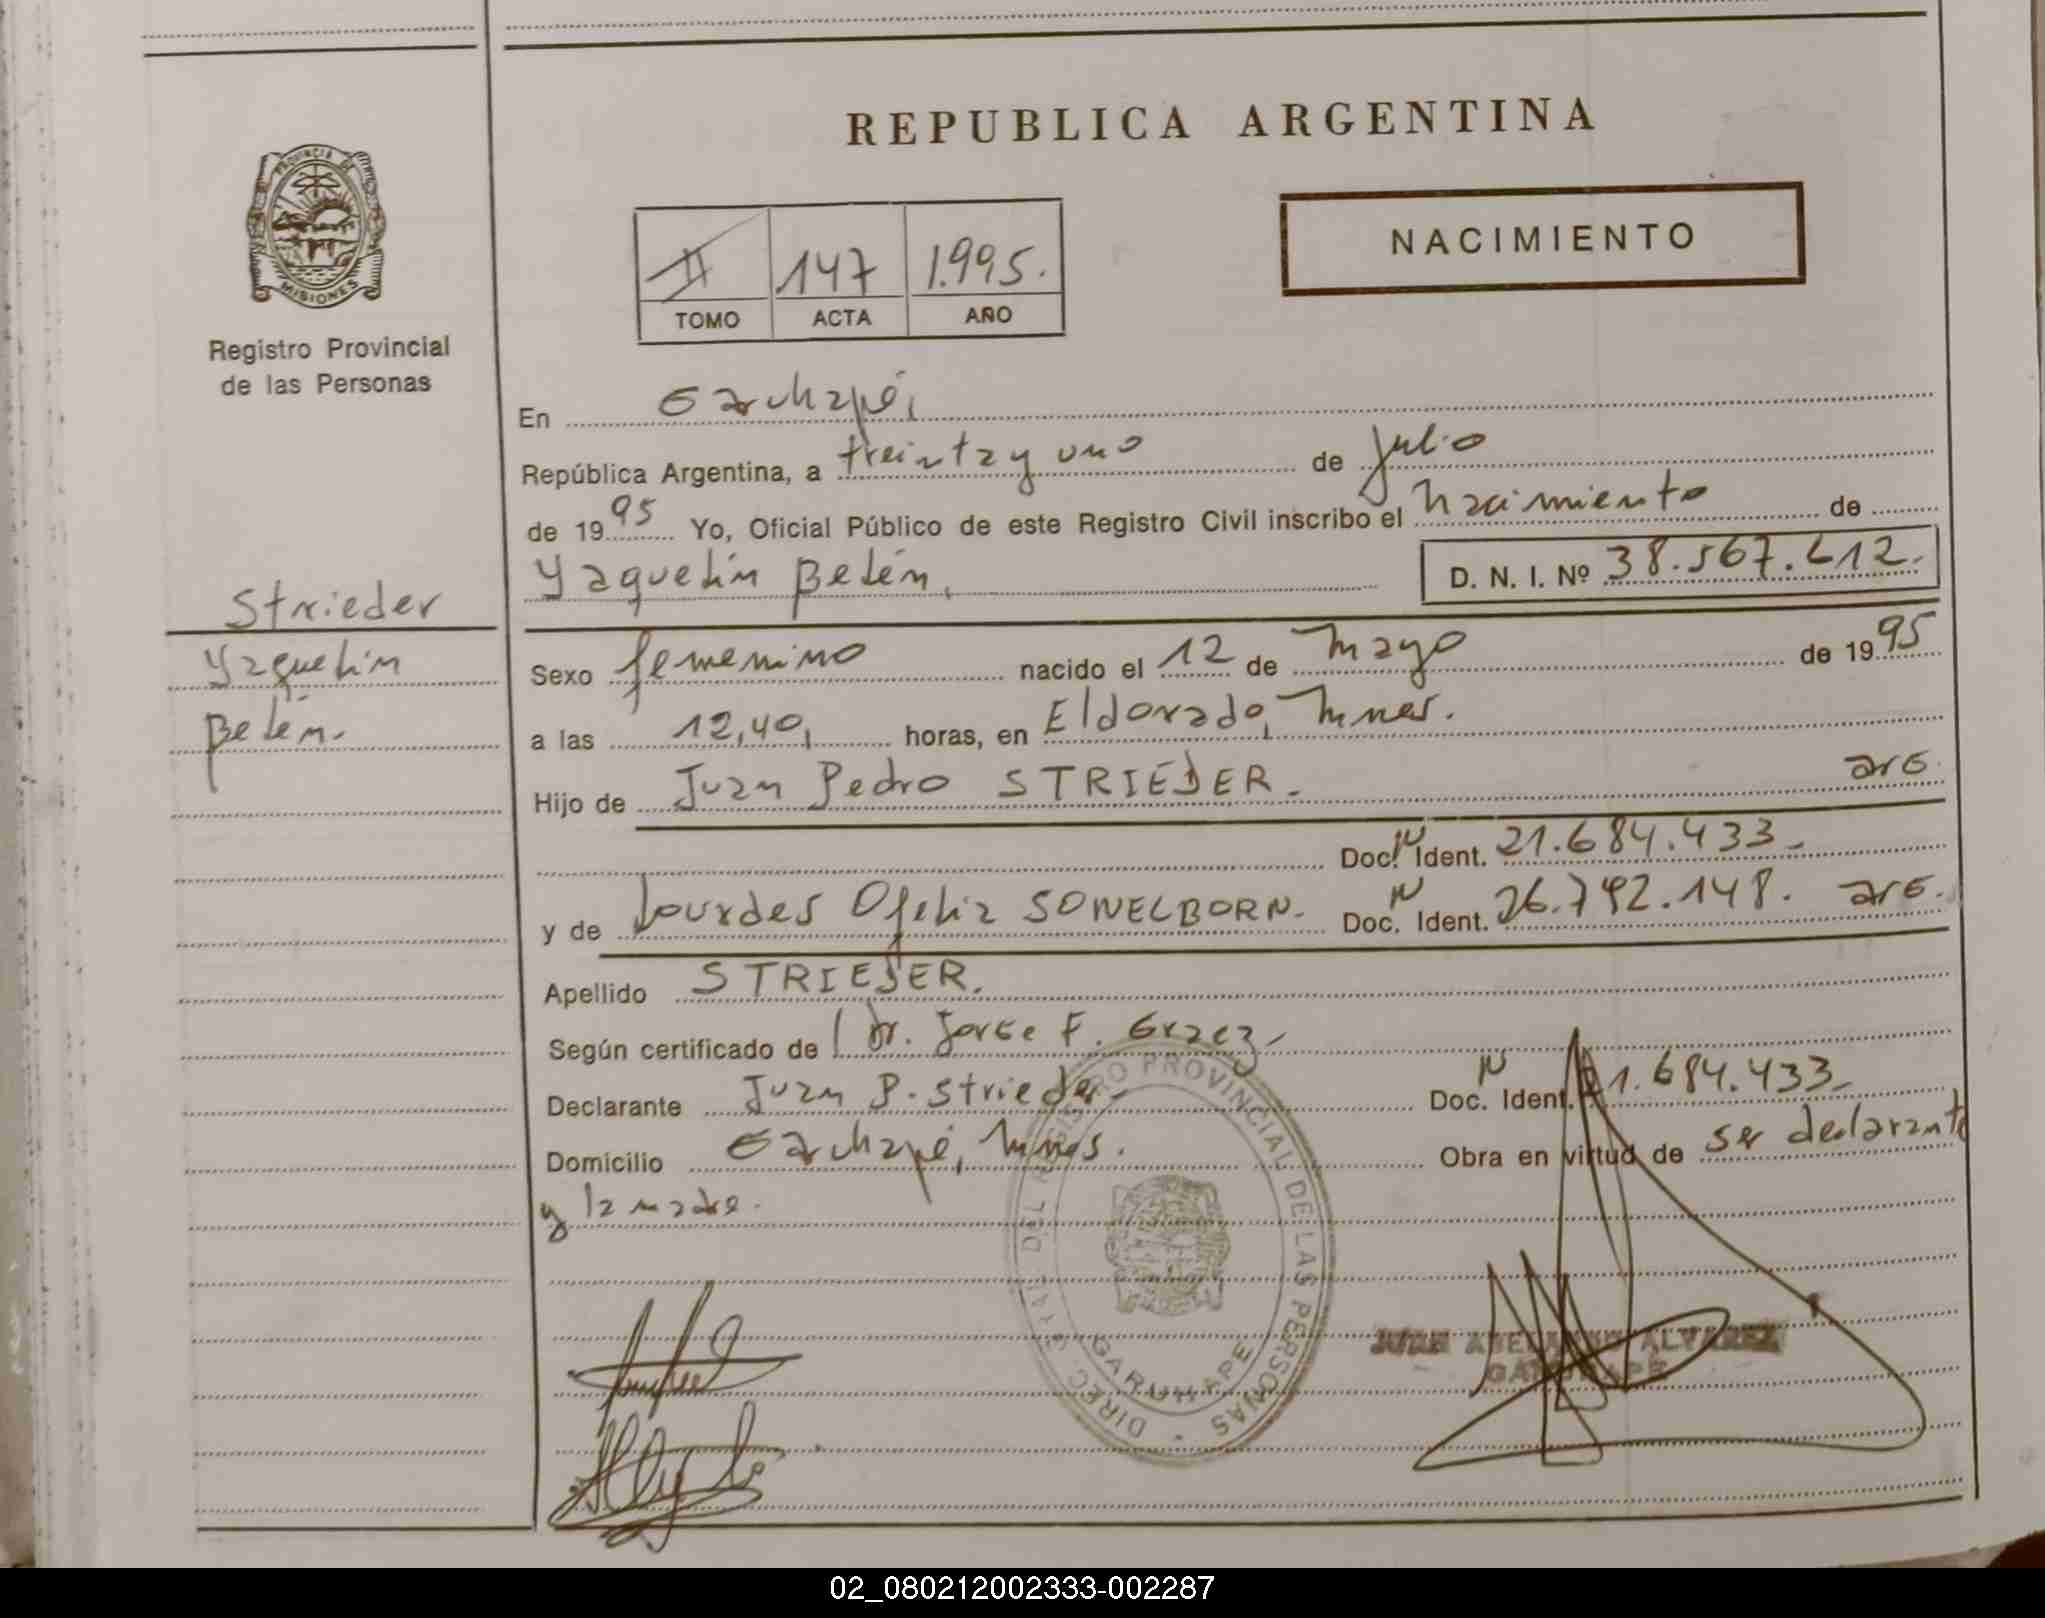 REPUBLICA ARGENTINA
PROVINCIA DE
MISIONES
Registro Provincial
de las Personas
II 147 1.995.
TOMO ACTA AÑO
NACIMIENTO
En Garuhapé,
República Argentina, a treinta y uno de julio
de 1995 Yo, Oficial Público de este Registro Civil inscribo el nacimiento de
Yaquelin Belén, D. N. I. Nº 38.567.612.
Strieder
Yaquelin
Belén.
Sexo femenino nacido el 12 de Mayo de 1995
a las 12,40, horas, en Eldorado, Mnes.
Hijo de Juan Pedro STRIEDER. arg.
Doc. N Ident. 21.684.433.
y de Lourdes Ofelia SONELBORN. Doc. N Ident. 26.792.148. arg.
Apellido STRIEDER.
Según certificado de Dr. Jorge F.
Declarante Juan P. Strieder Doc. N Ident. 21.684.433.
Domicilio Garuhapé, Mnes. Obra en virtud de ser declarante
y la madre.
DIREC. GRAL. DEL REGISTRO PROVINCIAL DE LAS PERSONAS
GARUHAPE
JUAN ALVAREZ
GARUHAPE
02_080212002333-002287